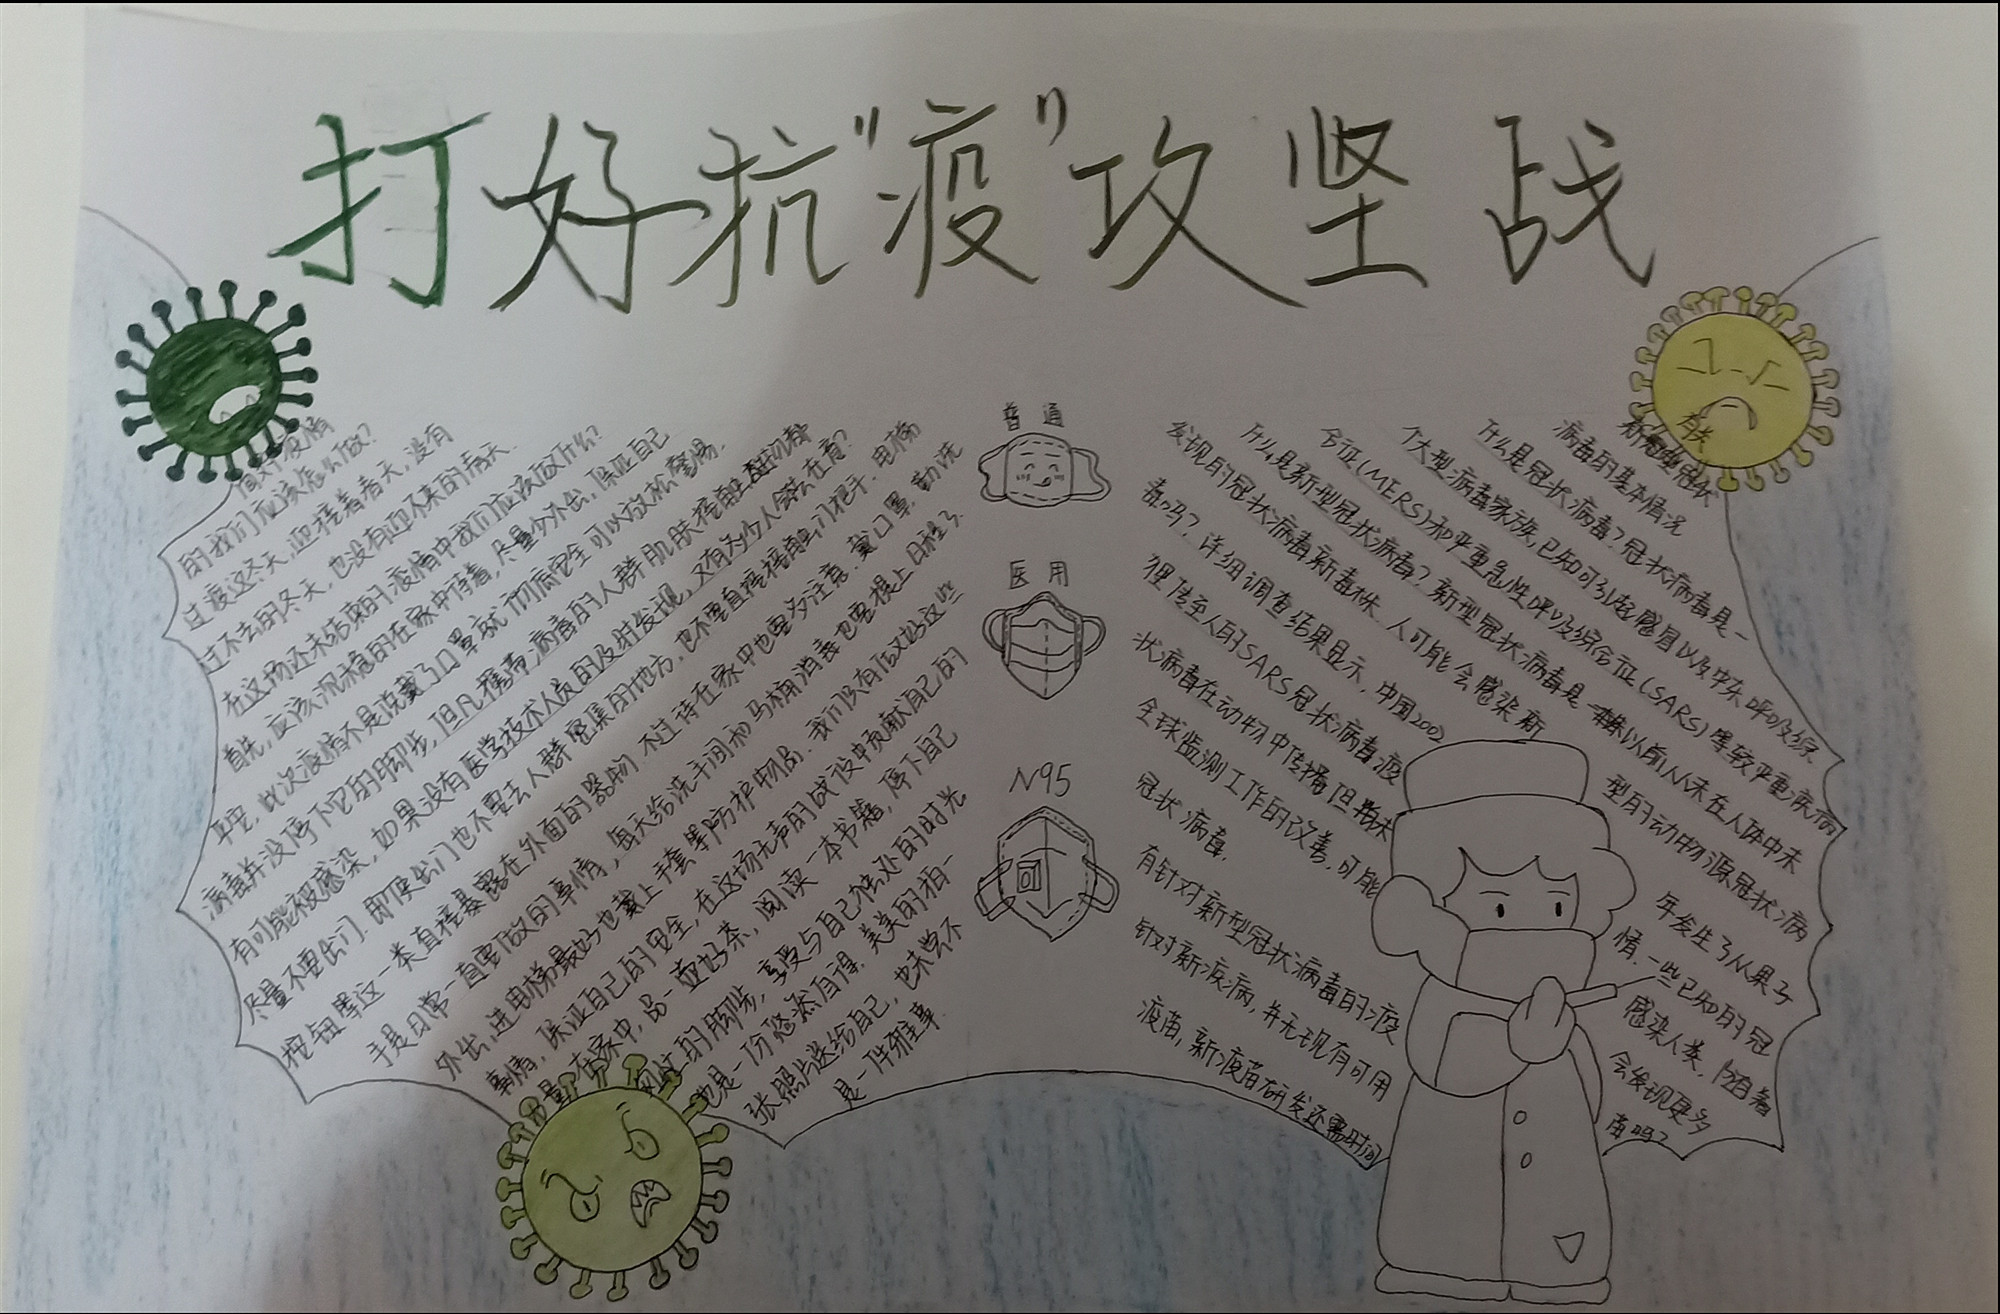 打好抗"疫"攻坚战
面对疫情
的我们应该怎么做?
过疫这冬天,迎接着春天,没有
过不去的冬天,也没有迎不来的春天.
在这场还未结束的疫情中我们应该做什么?
首先,应该沉稳的在家中待着,尽量少外出,保证自己
平安,此次疫情不是说戴了口罩就彻底完全可以放松警惕.
病毒并没停下它的脚步,但凡携带病毒的人群肌肤接触
有可能被感染,如果没有医学技术人员的及时发现,又有为少人会去在意?
尽量不要出门.即使出门也不要去人群密集的地方,也不要直接接触门把手.电梯
按钮等这一类直接暴露在外面的器物.不过待在家中也要多注意.戴口罩.勤洗
手是日常一直要做的事情,每天给洗手间和马桶消毒也要提上日程了.
外出,进电梯最好也戴上手套等防护物品.我们只有做好这些
事情,保证自己的安全,在这场无声的战役中贡献自己的
力量.在家中,品一壶好茶,阅读一本书籍,停下自己
匆忙的脚步,享受与自己独处的时光
也是一份悠然自得.美美的拍一
张照片送给自己,也未尝不
是一件雅事
普通
医用
N95
有关
新型冠状
病毒的基本情况
什么是冠状病毒?冠状病毒是一
个大型病毒家族,已知可引起感冒以及中东呼吸综
合征(MERS)和严重急性呼吸综合征(SARS)等较严重疾病
什么是新型冠状病毒?新型冠状病毒是一株以前从未在人体中未
发现的冠状病毒新毒株.人可能会感染新型的动物源冠状病
毒吗?详细调查结果显示,中国2002年发生了从果子
狸传至人的SARS冠状病毒疫情.一些已知的冠
状病毒在动物中传播但尚未感染人类,随着
全球监测工作的改善,可能会发现更多
冠状病毒.
有针对新型冠状病毒的疫苗吗?
针对新疾病,并无现有可用
疫苗,新疫苗研发还需时间